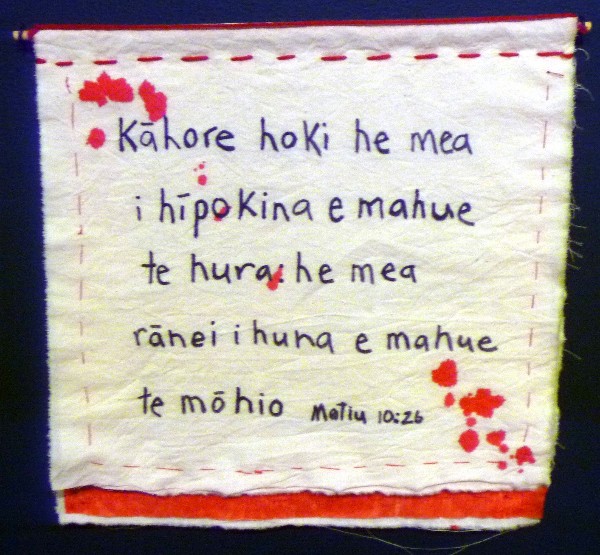 Kāhore hoki he mea
i hīpokina e mahue
te hura: he mea
rānei i huna e mahue
te mōhio Matiu 10:26